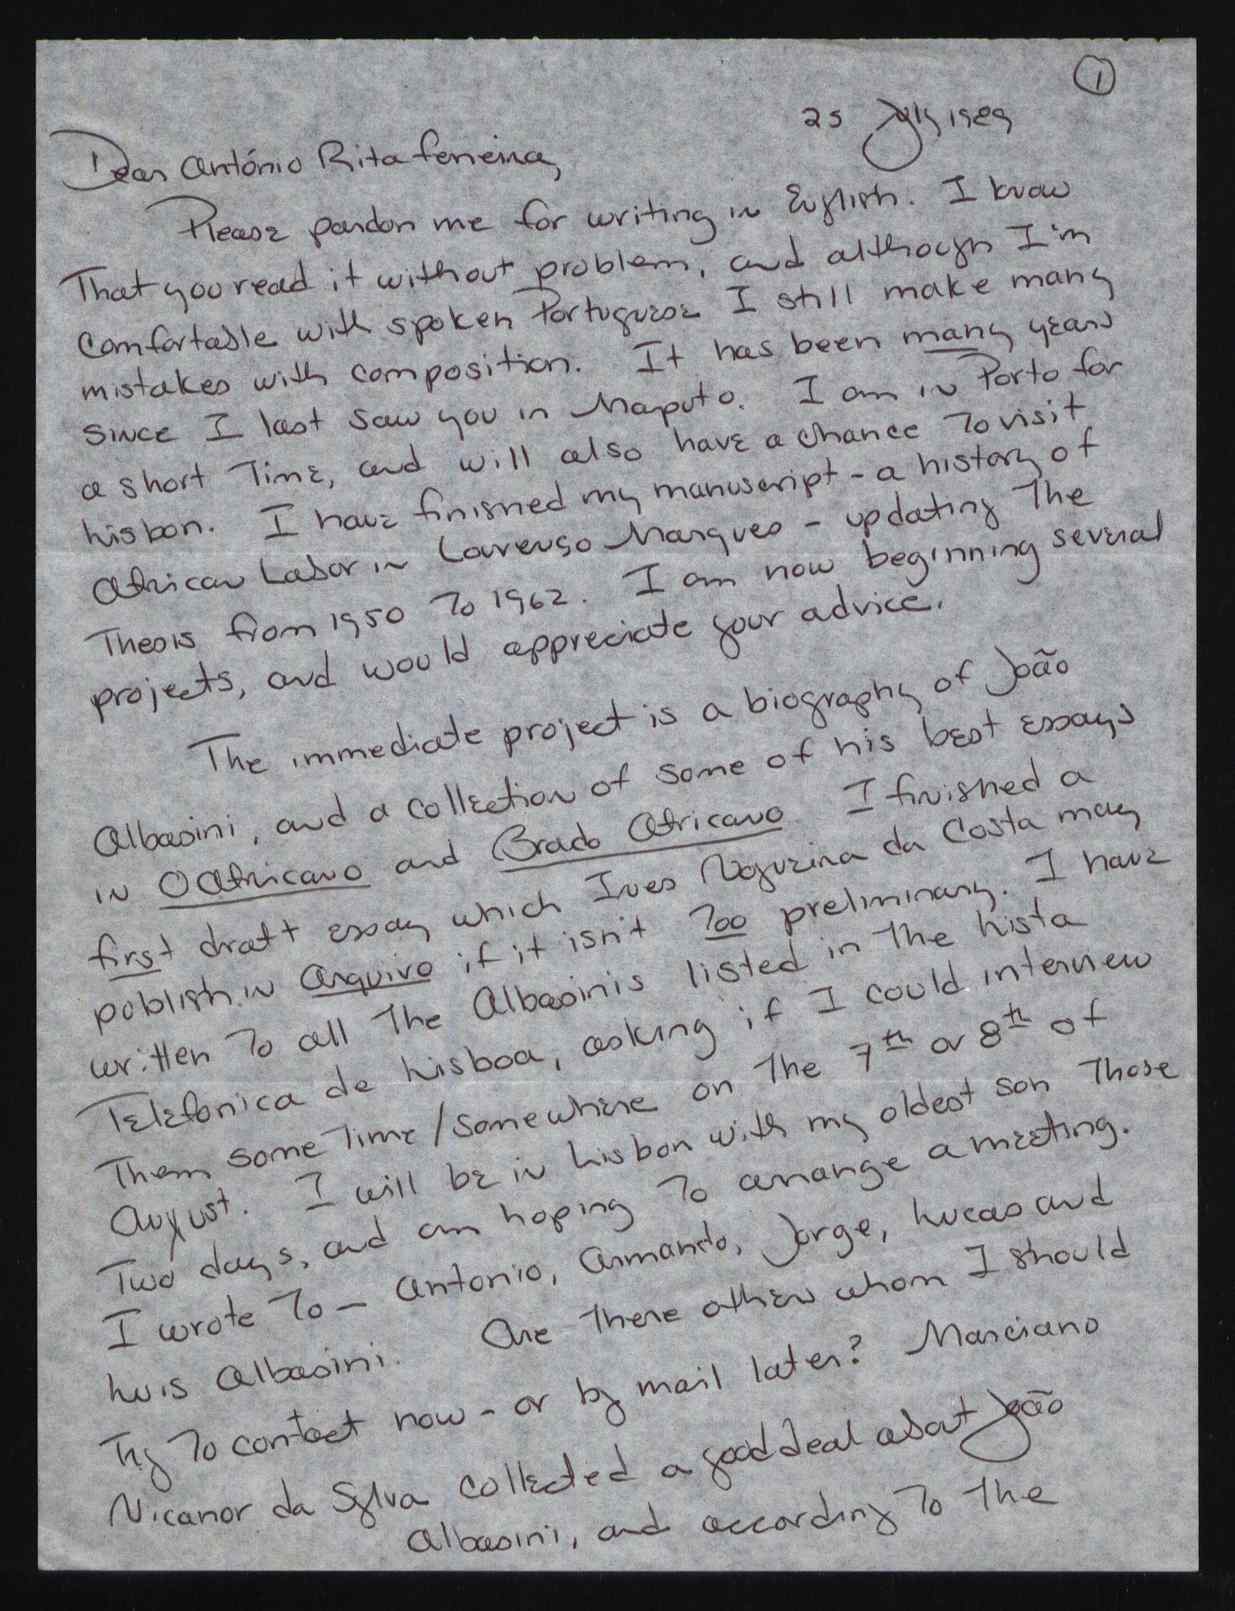 1
25 July 1989
Dear António Rita Ferreira,
Please pardon me for writing in English. I know
That you read it without problem, and although I'm
comfortable with spoken Portuguese I still make many
mistakes with composition. It has been many years
since I last saw you in Maputo. I am in Porto for
a short Time, and will also have a chance To visit
Lisbon. I have finished my manuscript - a history of
African Labor in Lourenço Marques - updating The
Thesis from 1950 To 1962. I am now beginning several
projects, and would appreciate your advice.
The immediate project is a biography of João
Albasini, and a collection of some of his best essays
in O Africano and Brado Africano. I finished a
first draft essay which Ines Nogueira da Costa may
publish in Arquivo if it isn't Too preliminary. I have
written To all The Albasinis listed in The Lista
Telefonica de Lisboa, asking if I could interview
Them some Time/somewhere on The 7th or 8th of
August. I will be in Lisbon with my oldest son Those
Two days, and am hoping To arrange a meeting.
I wrote To - Antonio, Armando, Jorge, Lucas and
Luis Albasini. Are There others whom I should
Try To contact now - or by mail later? Marciano
Nicanor da Sylva collected a good deal about João
Albasini, and according To The